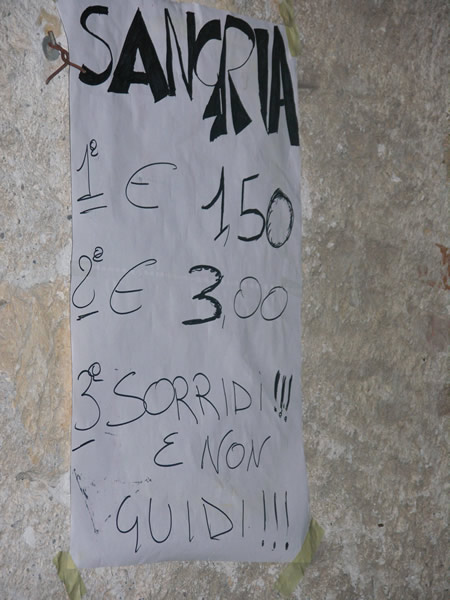 SANGRIA
1º € 1,50
2º € 3,00
3º SORRIDI!!!
E NON
GUIDI!!!